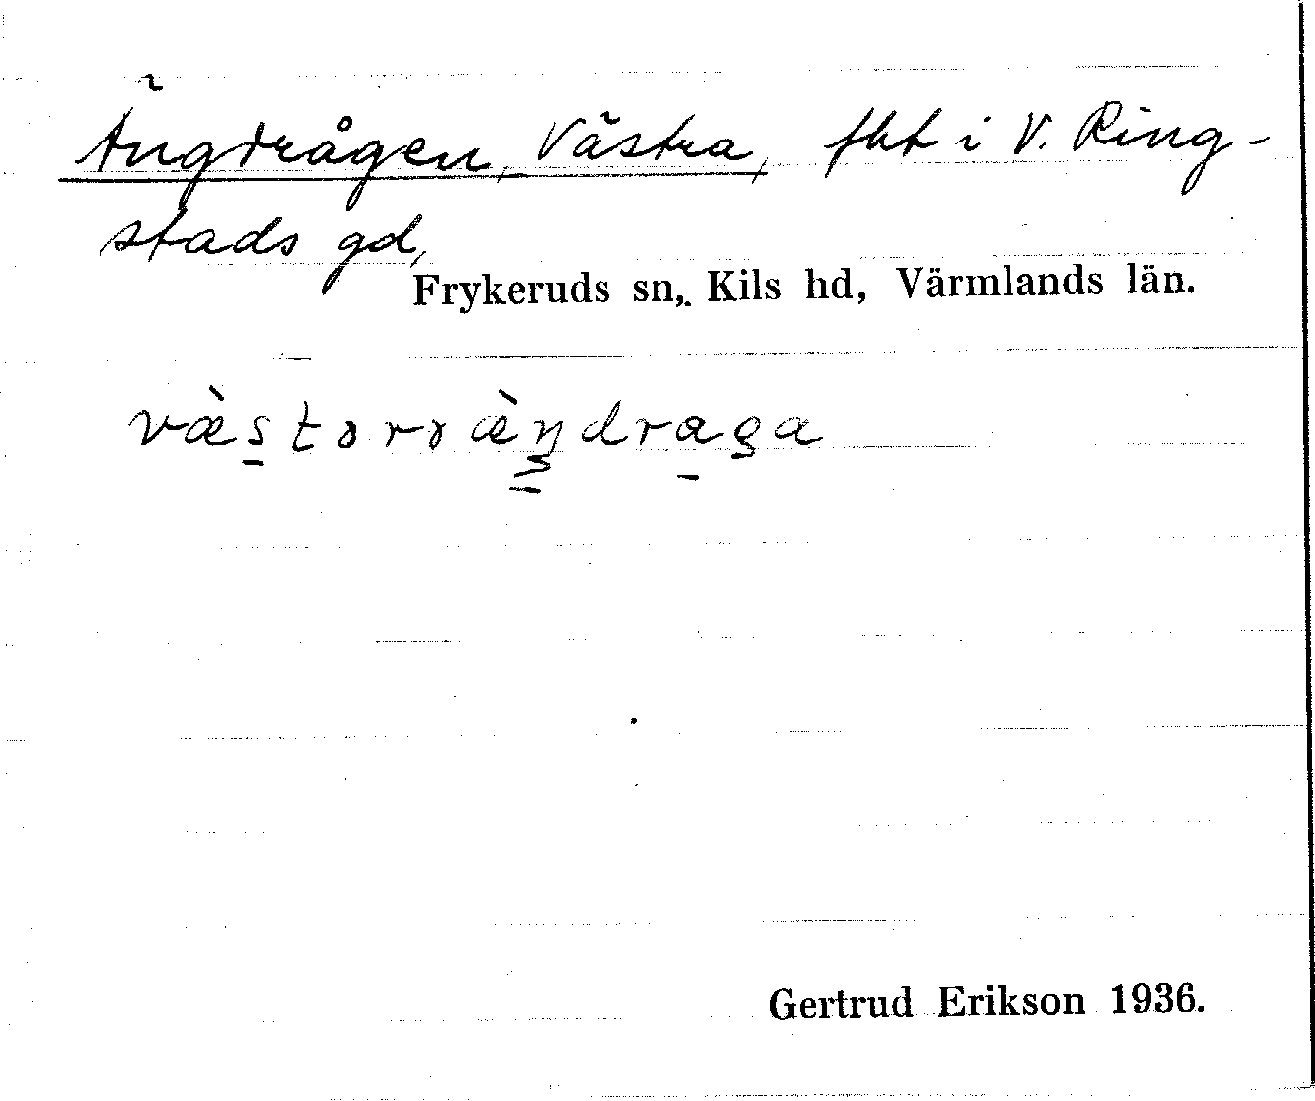 Ängdrågen, Västra, fht i V. Ring-
stads gd,
Frykeruds sn,. Kils hd, Värmlands län.
væ̀stərræ̀ŋdraga
Gertrud Erikson 1936.